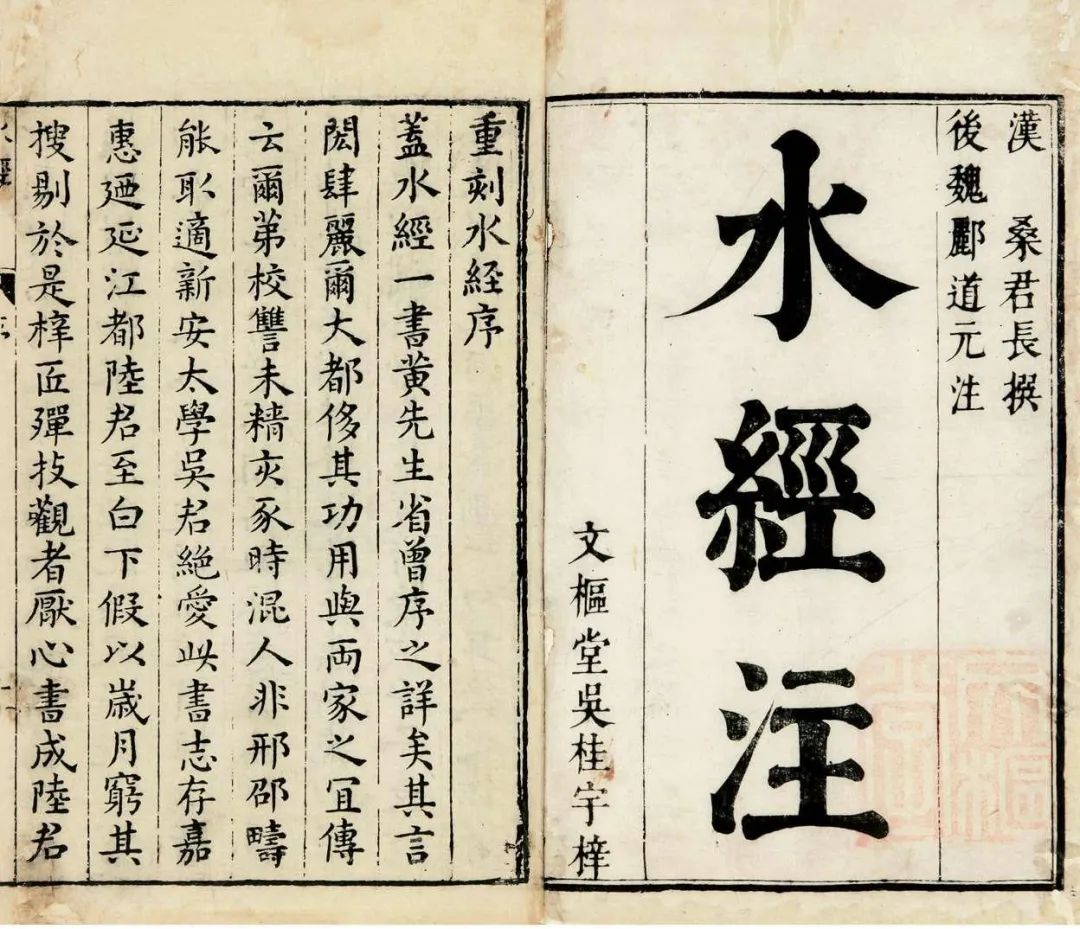 漢 桑君長撰
後魏酈道元注
水經注
文樞堂吳桂宇梓
重刻水経序
蓋水經一書黄先生省曾序之詳矣其言
閎肆麗爾大都侈其功用與両家之冝傳
云爾苐校讐未精亥豕時混人非邢邵疇
能㪅適新安太學吳君絶愛此書志存嘉
惠廼延江都陸君至白下假以歳月窮其
搜剔於是梓匠殫技觀者厭心書成陸君